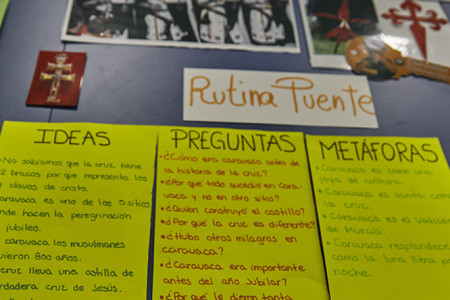 Rutina Puente
IDEAS
No sabíamos que la cruz tiene
2 brazos por que representa los
clavos de cristo.
aravaca es uno de los 5 sitios
nde hacen la peregrinación
jubileo.
caravaca los musulmanes
vieron 800 años.
cruz lleva una astilla de
rdadera cruz de Jesús.
PREGUNTAS
•¿Cómo era caravaca antes de
la historia de la cruz?
•¿Por qué todo sucedió en Cara-
vaca y no en otro sitio?
•¿Quien construyó el castillo?
•¿Por qué la cruz es diferente?
•¿Hubo otros milagros en
caravaca?
•¿Caravaca era importante
antes del año Jubilar?
•¿Por qué le dieron tanta
METÁFORAS
•Caravaca es como una
joya de cultura.
•Caravaca es santa como
la cruz.
•Caravaca es el Vaticano
de Murcia.
•Caravaca resplandece
como la luna llena
noche.